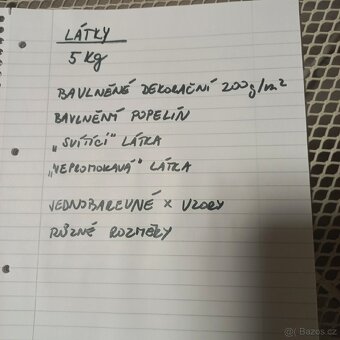 LÁTKY
5 Kg
BAVLNĚNÉ DEKORAČNÍ 200g/m²
BAVLNĚNÝ POPELÍN
„SVÍTÍCÍ" LÁTKA
„NEPROMOKAVÁ" LÁTKA
JEDNOBAREVNÉ × VZORY
RŮZNÉ ROZMĚRY
Bazos.cz